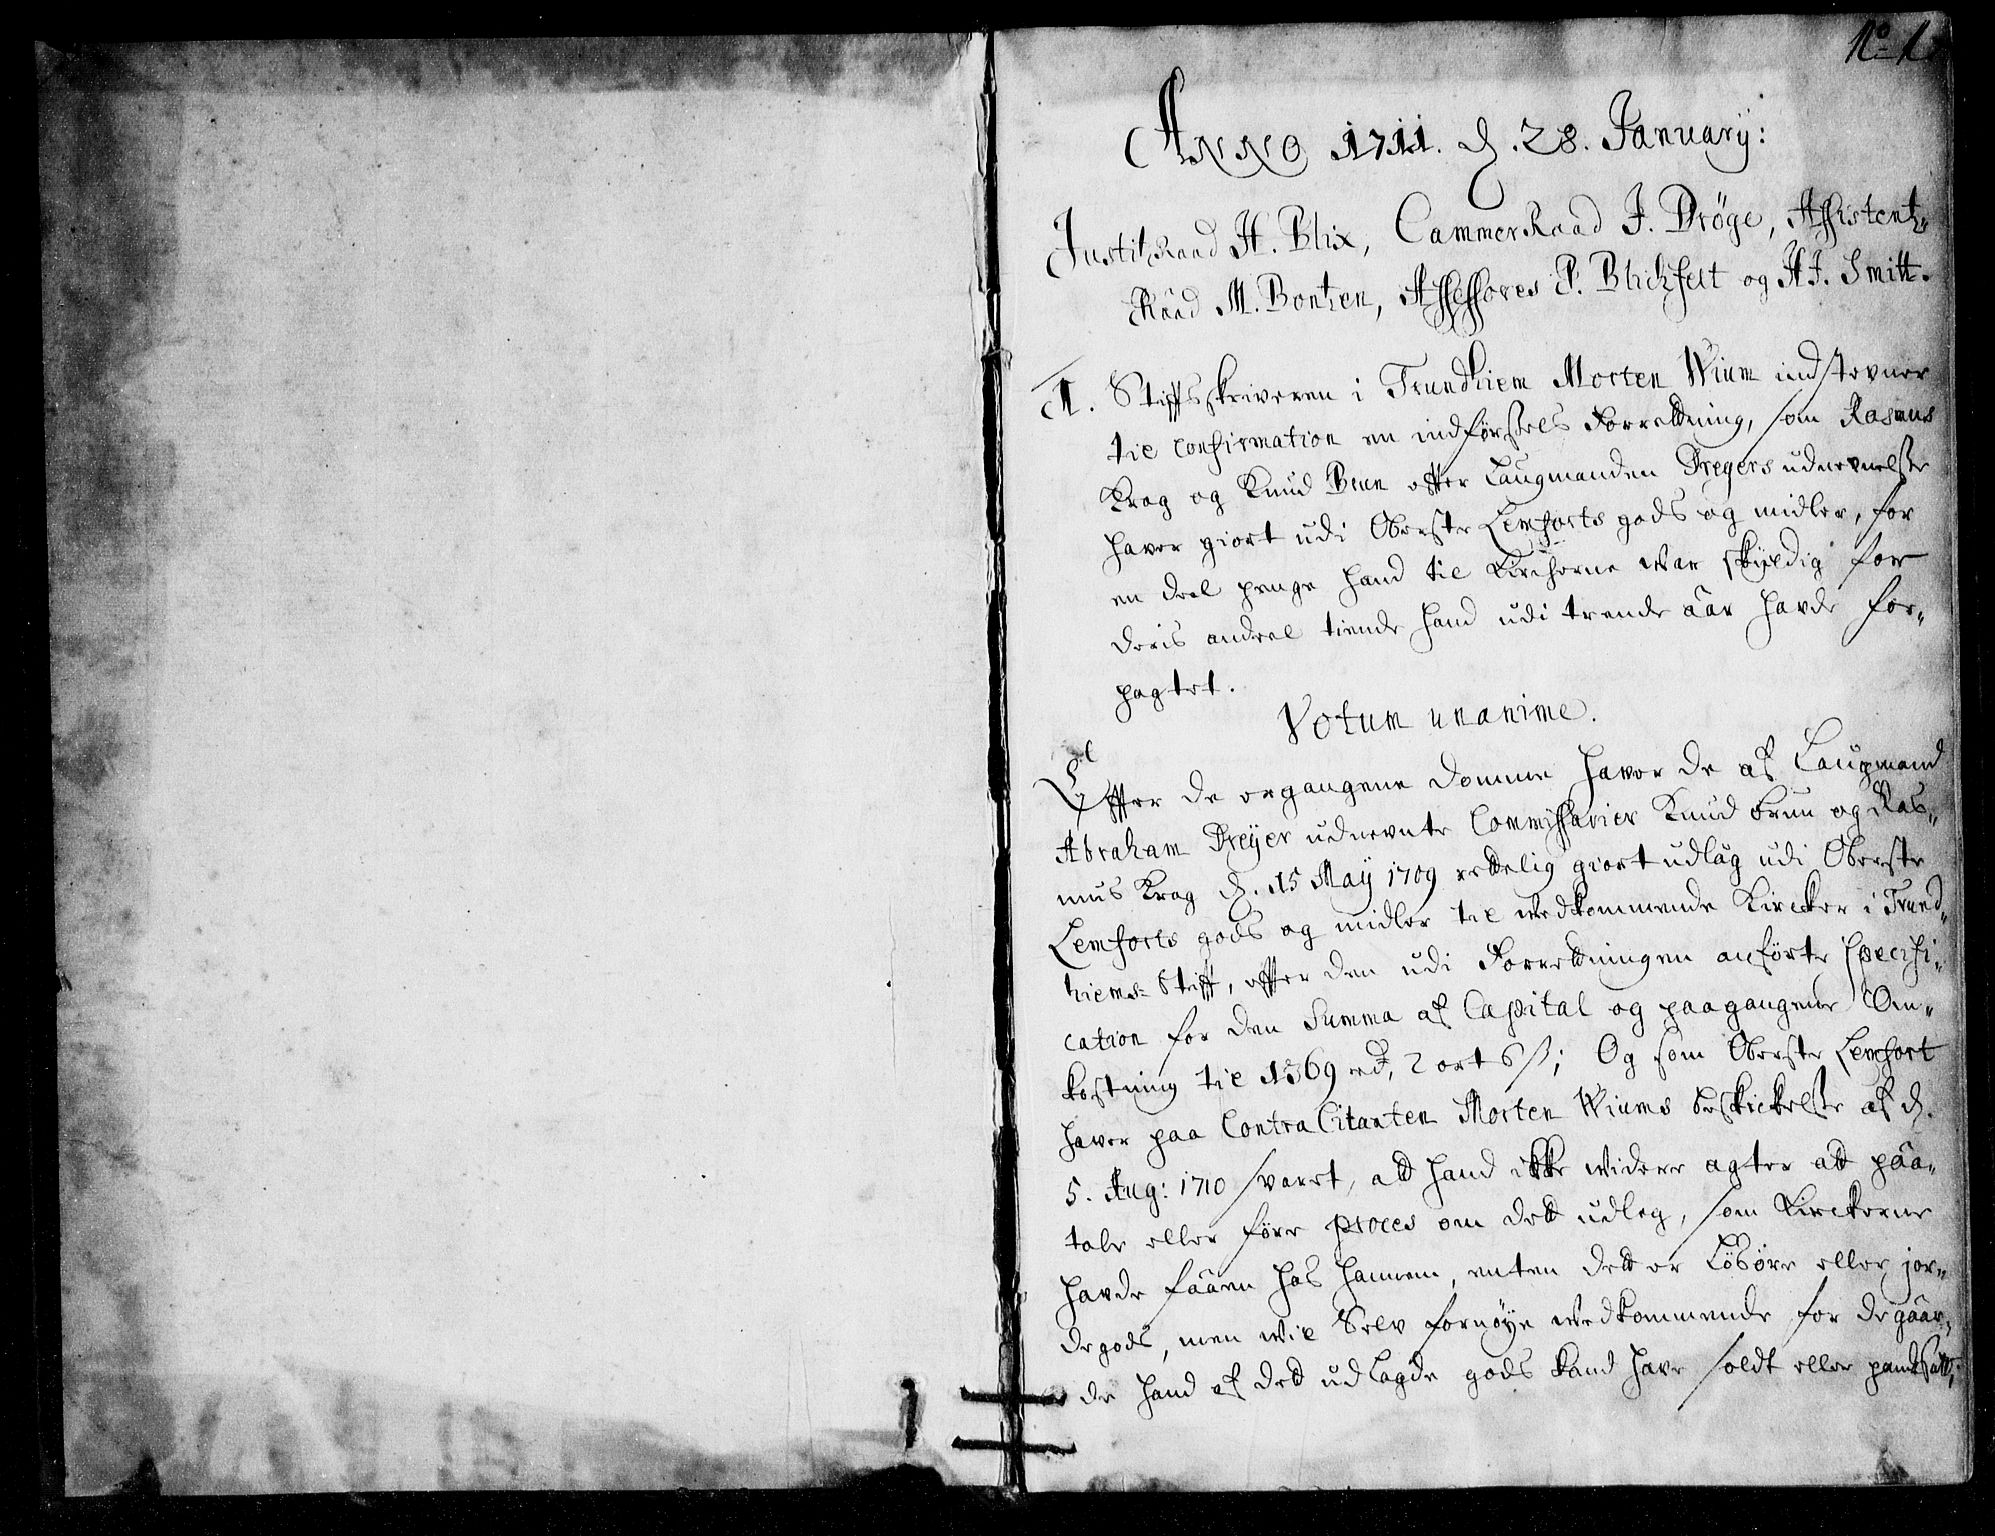 No 1.
Anno 1711. d. 28. January:
Justitz Raad H. Blix, Cammer Raad J. Dröge, Assistentz-
Raad M. Bontzen, Assessores P. Blichfelt og H. J. Smitt.
1. Stiffts skriveren i Trundhiem Morten Wium indstevner
til confirmation en indførsels Forretning, som Rasmus
Krag og Knud Brun effter Laugmanden Dreyers udnevnelse
hafver giort udi Oberste Lemforts gods og midler, for
en deel penge hand til Kircherne war skyldig for
deris andeel tiende hand udi trende aar hafde for-
pagtet.
Votum unanime.
Effter de ergangene Domme hafver de af Laugmand
Abraham Dreyer udnevnte Commissarier Knud Brun og Ras-
mus Krag d. 15 May 1709 rettelig giort udlæg udi Oberste
Lemforts gods og midler til wedkommende Kircker i Trund-
hiems Stifft, effter den udi Forretningen anførte specifi-
cation for den Summa af Capital og paagangene Om-
kostning til 1369 rd, 2 ort 6 ß; Og som Oberste Lemfort
hafver paa ContraCitanten Morten Wiums beskickelse af d.
5. Aug: 1710 svaret, att hand ikke widere agter att paa-
tale eller føre proces om dett udleg, som Kirckerne
hafde faaen hos hannem, enten dett er Løsøre eller jor-
degods, men wil Selv fornøye wedkommende for de gaar-
de hand af dett udlagde gods kand hafve soldt eller pandsatt,